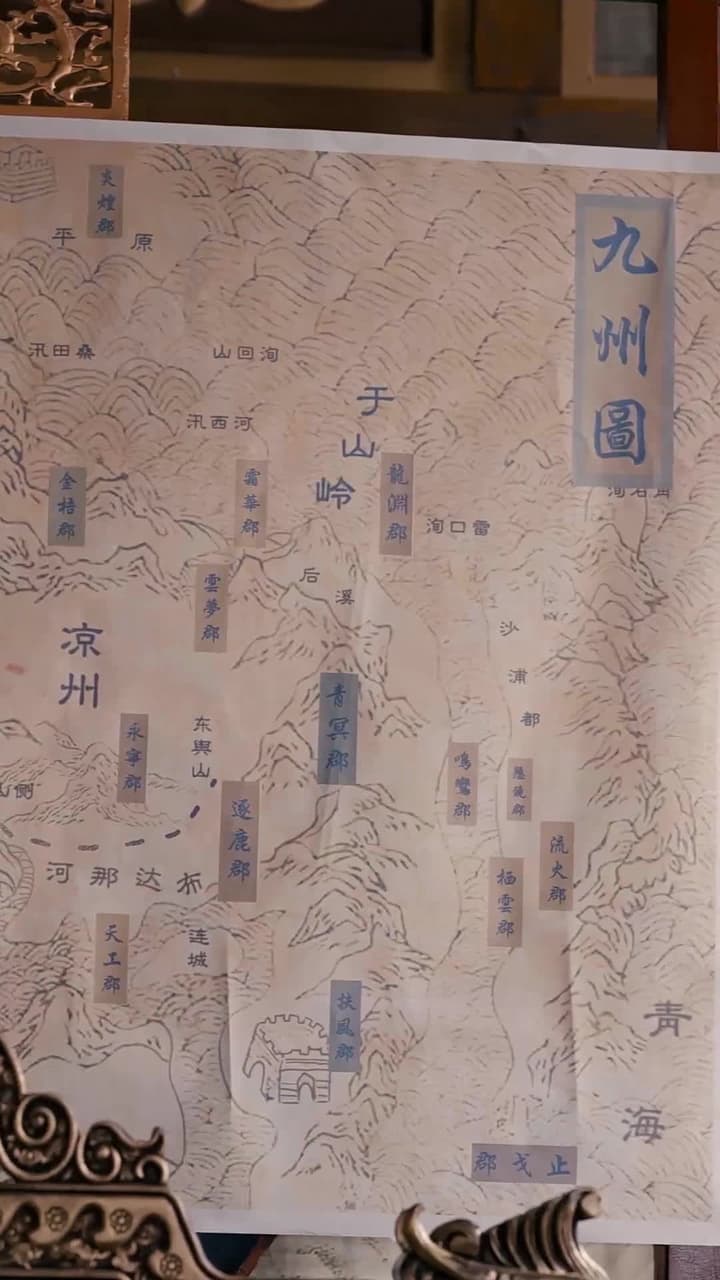 九州圖
炎煌郡
平原
汛田桑
山回洵
汛西河
于山岭
金梧郡
霜華郡
龍淵郡
洵口雷
后溪
雲夢郡
沙浦都
凉州
青冥郡
永寧郡
东舆山
山侧
鳴鸞郡
逐鹿郡
流火郡
栖雲郡
河那达布
天工郡
连城
扶風郡
青海
郡戈止